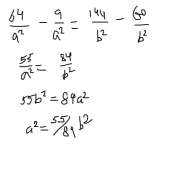 64/a² - 9/a² = 144/b² - 60/b²
55/a² = 84/b²
55b² = 84a²
a² = 55/84 b²